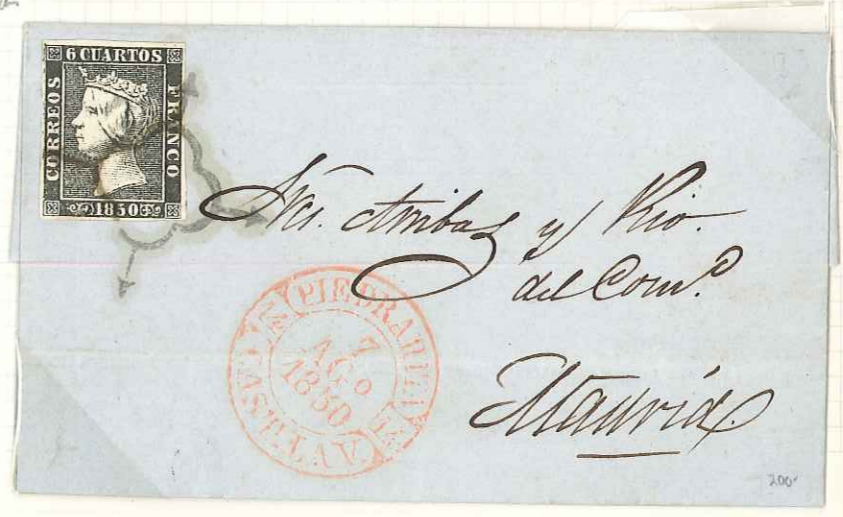 6 CUARTOS
CORREOS
FRANCO
1850
Srs. Arribas y Rio.
del Com.º
Madrid
PIEDRAHITA
7
AGº
1850
CAST. LA V.
200